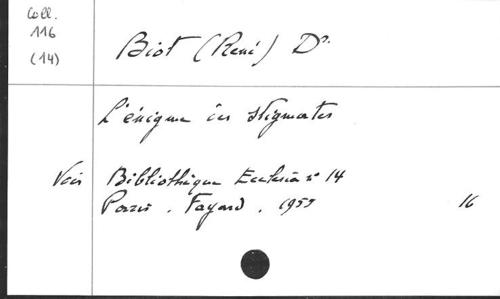 Coll.
116
(14)
Biot (René) Dr.
L'énigme des stigmates
Voir Bibliothèque Ecclesia n° 14
Paris. Fayard. 1955 16